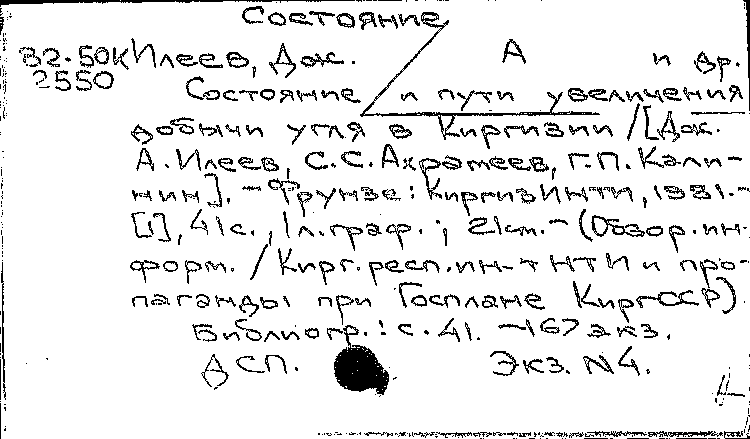 Состояние
82-50К Илеев, Дж. А и др.
2550 Состояние и пути увеличения
добычи угля в Киргизии / [Дж.
А. Илеев, С.С. Ахратеев, Г.П. Кали-
нин]. - Фрунзе: КиргизИНТИ, 1981. -
[1], 41 с., 1 л. граф.; 21 см. - (Обзор. ин-
форм. / Кирг. респ. ин-т НТИ и про-
паганды при Госплане КиргССР)
Библиогр.: с. 41. - 167 экз.
ДСП. Экз. N4.